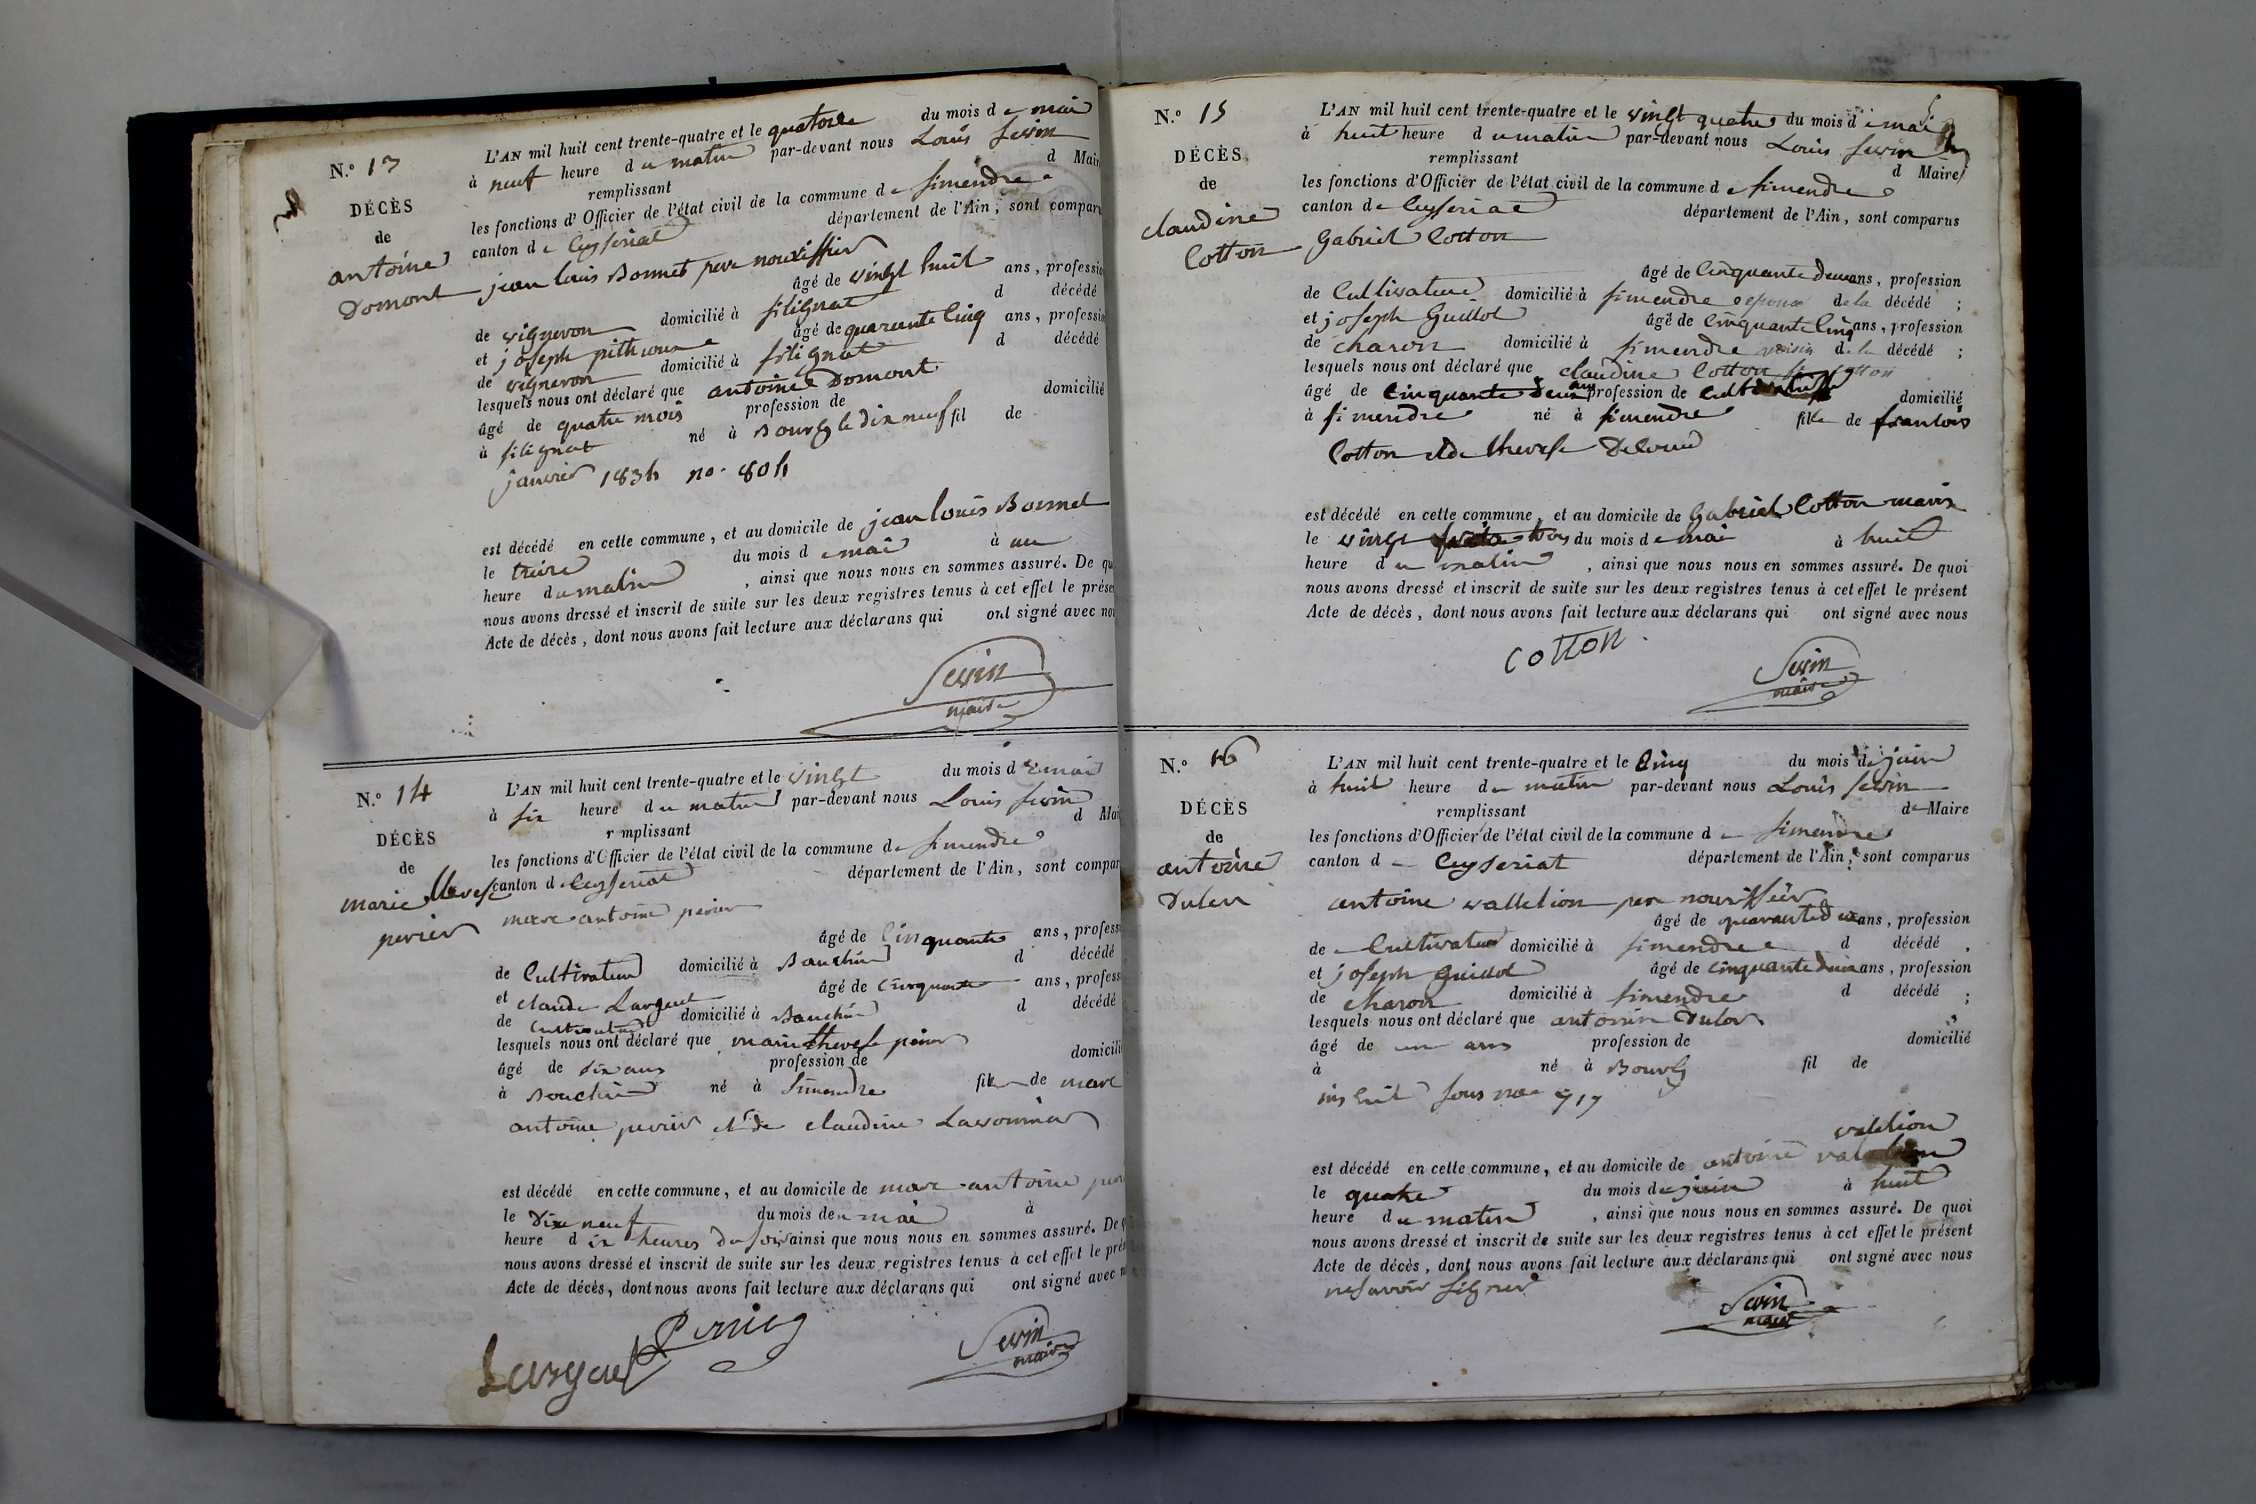 N.º 13
DÉCÈS
de
antoine
Domont
L'AN mil huit cent trente-quatre et le quatorze du mois d e mai
à neuf heure d u matin par-devant nous Louis Sevin
remplissant d Maire
les fonctions d'Officier de l'état civil de la commune d e simendre
canton d e Ceyseriat département de l'Ain, sont comparu
jean louis Bonnet pere nourissier
âgé de vingt huit ans, professio
de vigneron domicilié à silignat d décédé
et joseph âgé de quarante cinq ans, professio
de vigneron domicilié à silignat d décédé
lesquels nous ont déclaré que antoine Domont
âgé de quatre mois profession de domicilié
à silignat né à Bourg le dix neuf fil de
janvier 1834 no. 804
est décédé en cette commune, et au domicile de jean louis Bonnet
le treize du mois d e mai à un
heure d u matin , ainsi que nous nous en sommes assuré. De qu
nous avons dressé et inscrit de suite sur les deux registres tenus à cet effet le prése
Acte de décès, dont nous avons fait lecture aux déclarans qui ont signé avec nou
Sevin
maire
N.º 14
DÉCÈS
de
marie therese
perier
L'AN mil huit cent trente-quatre et le vingt du mois d e mai
à six heure d u matin par-devant nous Louis Sevin
r mplissant d Mai
les fonctions d'Officier de l'état civil de la commune d e simendre
canton d e Ceyseriat département de l'Ain, sont compar
marc antoine perier
âgé de cinquante ans, profess
de Cultivateur domicilié à d décédé
et claude Larguet âgé de cinquante ans, profess
de cultivateur domicilié à d décédé
lesquels nous ont déclaré que marie therese perier
âgé de dix ans profession de domicili
à né à Simendre fille de marc
antoine perier et de claudine
est décédé en cette commune, et au domicile de marc antoine
le dix neuf du mois de mai à
heure d ix heures du soir ainsi que nous nous en sommes assuré. De q
nous avons dressé et inscrit de suite sur les deux registres tenus à cet effet le pré
Acte de décès, dont nous avons fait lecture aux déclarans qui ont signé avec n
Perrier
Sevin
maire
N.º 15
DÉCÈS
de
claudine
Cotton
L'AN mil huit cent trente-quatre et le vingt quatre du mois d e mai
à huit heure d u matin par-devant nous Louis Sevin
remplissant d Maire
les fonctions d'Officier de l'état civil de la commune d e simendre
canton d e Ceyseriat département de l'Ain, sont comparus
Gabriel Cotton
âgé de cinquante deux ans, profession
de Cultivateur domicilié à simendre epoux de la décédé ;
et joseph Guillot âgé de cinquante cinq ans, profession
de charon domicilié à simendre voisin de la décédé ;
lesquels nous ont déclaré que claudine Cotton
âgé de cinquante deux ans profession de domicilié
à simendre né à simendre fille de francois
Cotton et de therese
est décédé en cette commune, et au domicile de Gabriel Cotton maris
le vingt trois du mois d e mai à huit
heure d u matin , ainsi que nous nous en sommes assuré. De quoi
nous avons dressé et inscrit de suite sur les deux registres tenus à cet effet le présent
Acte de décès, dont nous avons fait lecture aux déclarans qui ont signé avec nous
COTTON
Sevin
maire
N.º 16
DÉCÈS
de
antoine
L'AN mil huit cent trente-quatre et le Cinq du mois d e juin
à huit heure d u matin par-devant nous Louis Sevin
remplissant de Maire
les fonctions d'Officier de l'état civil de la commune d e simendre
canton d e Ceyseriat département de l'Ain, sont comparus
antoine valletion pere nourissier
âgé de quarante deux ans, profession
de Cultivateur domicilié à simendre d décédé
et joseph Guillot âgé de cinquante deux ans, profession
de charon domicilié à simendre d décédé ;
lesquels nous ont déclaré que antoine
âgé de un ans profession de domicilié
à né à Bourg fil de
inscrit sous no 717
valetion
est décédé en cette commune, et au domicile de antoine
le quatre du mois de juin à huit
heure d u matin , ainsi que nous nous en sommes assuré. De quoi
nous avons dressé et inscrit de suite sur les deux registres tenus à cet effet le présent
Acte de décès, dont nous avons fait lecture aux déclarans qui ont signé avec nous
ne savoir signer
Sevin
maire